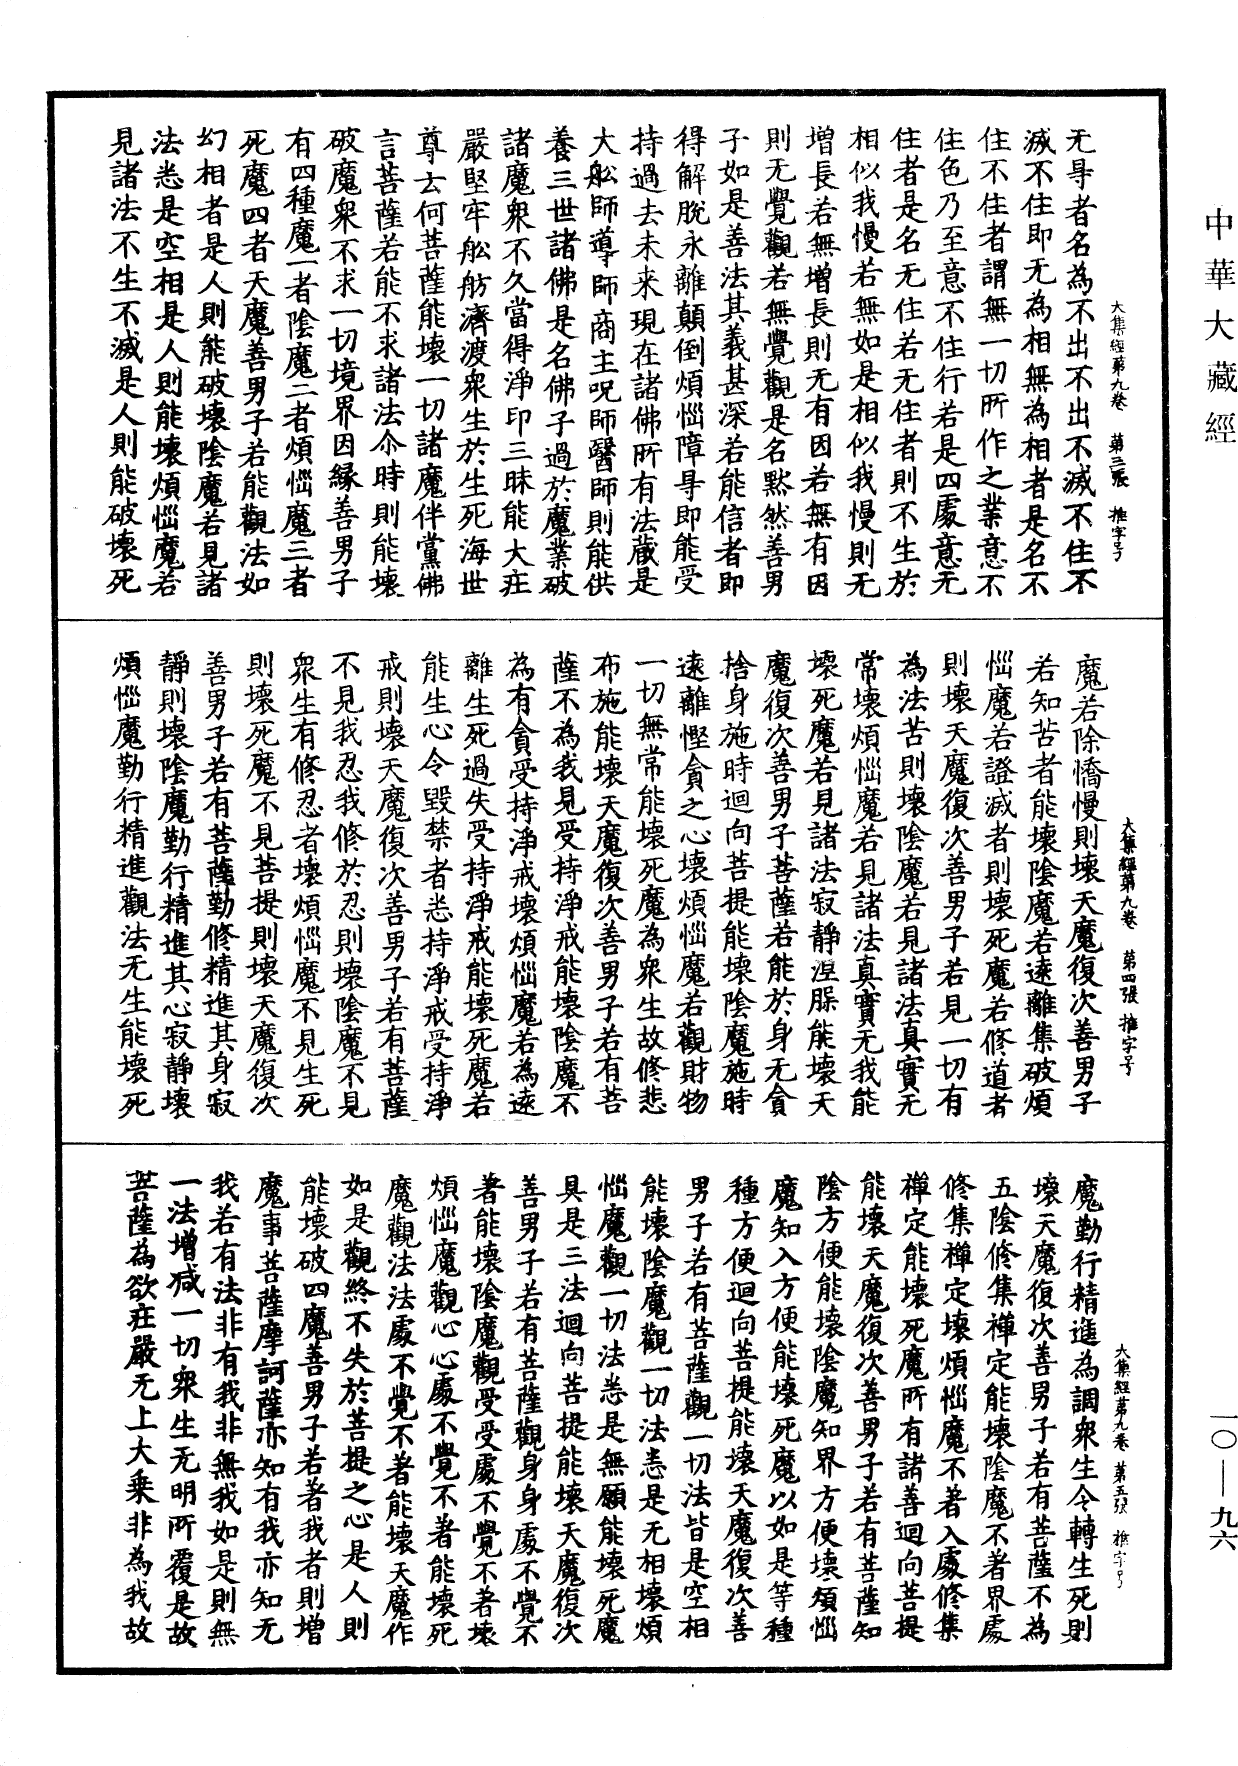 中華大藏經
大集經第九卷 第三張 推字号
无㝵者名為不出不出不滅不住不
滅不住即无為相無為相者是名不
住不住者謂無一切所作之業意不
住色乃至意不住行若是四處意无
住者是名无住若无住者則不生於
相似我慢若無如是相似我慢則无
增長若無增長則无有因若無有因
則无覺觀若無覺觀是名默然善男
子如是善法其義甚深若能信者即
得解脫永離顛倒煩惱障㝵即能受
持過去未来現在諸佛所有法藏是
大舩師導師商主呪師醫師則能供
養三世諸佛是名佛子過於魔業破
諸魔衆不久當得淨印三昧能大疰
嚴堅牢舩舫濟渡衆生於生死海世
尊云何菩薩能壞一切諸魔伴黨佛
言菩薩若能不求諸法尒時則能壞
破魔衆不求一切境界因緣善男子
有四種魔一者陰魔二者煩惱魔三者
死魔四者天魔善男子若能觀法如
幻相者是人則能破壞陰魔若見諸
法悉是空相是人則能壞煩惱魔若
見諸法不生不滅是人則能破壞死
大集經第九卷 第四張 推字号
魔若除憍慢則壞天魔復次善男子
若知苦者能壞陰魔若遠離集破煩
惱魔若證滅者則壞死魔若修道者
則壞天魔復次善男子若見一切有
為法苦則壞陰魔若見諸法真實无
常壞煩惱魔若見諸法真實无我能
壞死魔若見諸法寂靜涅槃能壞天
魔復次善男子菩薩若能於身无貪
捨身施時迴向菩提能壞陰魔施時
遠離慳貪之心壞煩惱魔若觀財物
一切無常能壞死魔為衆生故修悲
布施能壞天魔復次善男子若有菩
薩不為我見受持淨戒能壞陰魔不
為有貪受持淨戒壞煩惱魔若為遠
離生死過失受持淨戒能壞死魔若
能生心令毀禁者悉持淨戒受持淨
戒則壞天魔復次善男子若有菩薩
不見我忍我修於忍則壞陰魔不見
衆生有修忍者壞煩惱魔不見生死
則壞死魔不見菩提則壞天魔復次
善男子若有菩薩勤修精進其身寂
靜則壞陰魔勤行精進其心寂靜壞
煩惱魔勤行精進觀法无生能壞死
大集經第九卷 第五張 推字号
魔勤行精進為調衆生令轉生死則
壞天魔復次善男子若有菩薩不為
五陰修集禅定能壞陰魔不著界處
修集禅定壞煩惱魔不著入處修集
禅定能壞死魔所有諸善迴向菩提
能壞天魔復次善男子若有菩薩知
陰方便能壞陰魔知界方便壞煩惱
魔知入方便能壞死魔以如是等種
種方便迴向菩提能壞天魔復次善
男子若有菩薩觀一切法皆是空相
能壞陰魔觀一切法悉是无相壞煩
惱魔觀一切法悉是無願能壞死魔
具是三法迴向菩提能壞天魔復次
善男子若有菩薩觀身身處不覺不
著能壞陰魔觀受受處不覺不著壞
煩惱魔觀心心處不覺不著能壞死
魔觀法法處不覺不著能壞天魔作
如是觀終不失於菩提之心是人則
能壞破四魔善男子若著我者則增
魔事菩薩摩訶薩亦知有我亦知无
我若有法非有我非無我如是則無
一法增减一切衆生无明所覆是故
菩薩為欲疰嚴无上大乗非為我故
一〇—九六